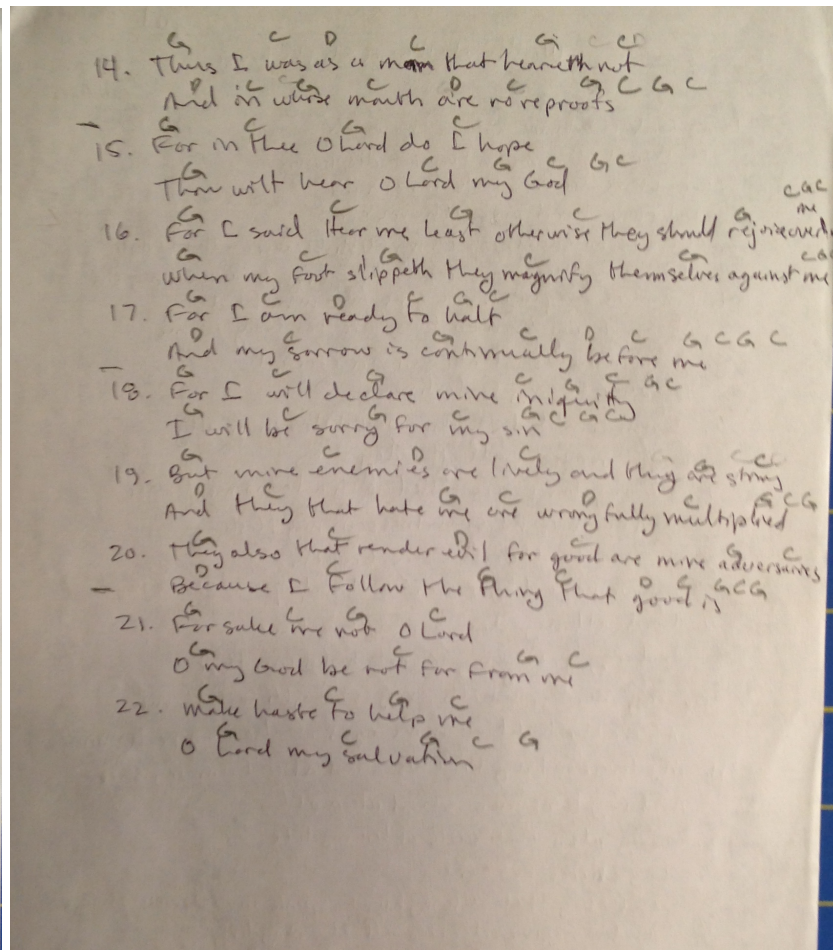 G C D C G C C
14. Thus I was as a man that heareth not
D C G C D C G C G C
And in whose mouth are no reproofs
G C G C
15. For in thee O Lord do I hope
G C G C G C
Thou wilt hear O Lord my God
G C G C G C G C
16. For I said Hear me least otherwise they should rejoice over me
G C G C G C G
when my foot slippeth they magnify themselves against me
G C D C G C
17. For I am ready to halt
D C G C D C G C G C
And my sorrow is continually before me
G C G C G C G C
18. For I will declare mine iniquity
G C G C G C G C
I will be sorry for my sin
G C D C G C
19. But mine enemies are lively and they are strong
D C G C D C G C G
And they that hate me are wrongfully multiplied
G C D C G C
20. They also that render evil for good are mine adversaries
D C G C D C G C G
Because I follow the thing that good is
G C G C
21. Forsake me not O Lord
G C G C
O my God be not far from me
G C G C
22. make haste to help me
G C G C G
O Lord my salvation